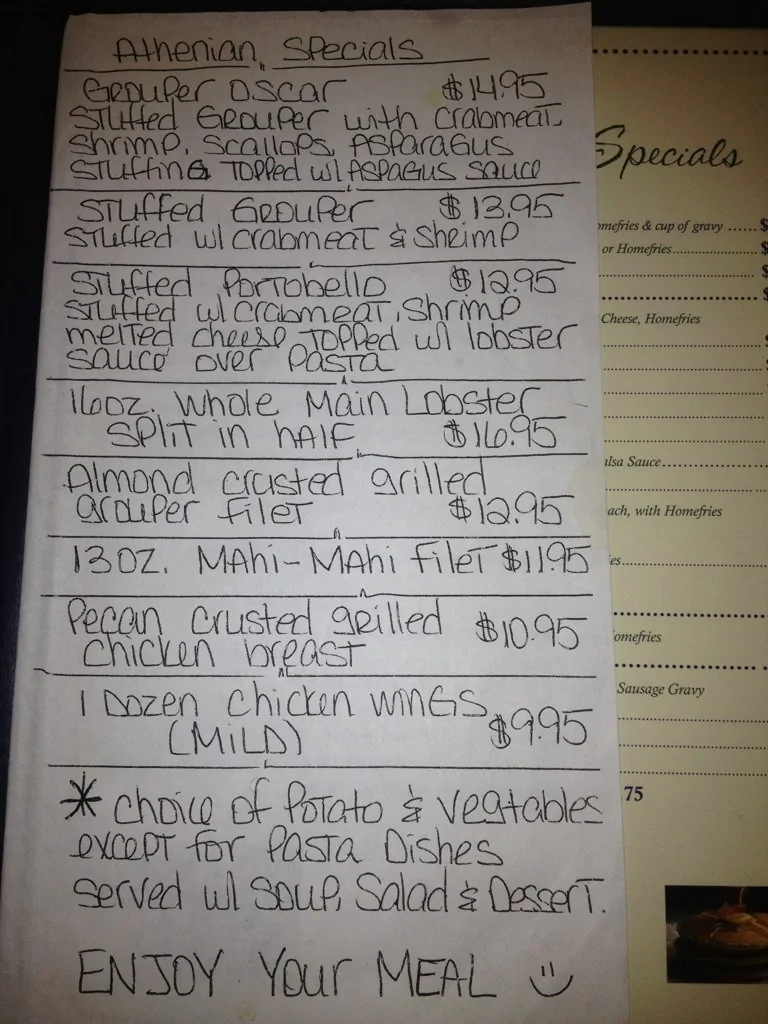 Athenian Specials
Grouper Oscar $14.95
Stuffed Grouper with crabmeat,
shrimp, scallops, Asparagus
stuffing topped w/ Aspagus sauce
Stuffed Grouper $13.95
stuffed w/ crabmeat & shrimp
Stuffed Portobello $12.95
stuffed w/ crabmeat, shrimp
melted cheese topped w/ lobster
sauce over Pasta
16oz. Whole Main Lobster
split in half $16.95
Almond crusted grilled
grouper filet $12.95
13oz. Mahi-Mahi filet $11.95
Pecan crusted grilled
chicken breast $10.95
1 Dozen chicken WINGS
(MILD) $9.95
* choice of Potato & vegtables
except for Pasta Dishes
served w/ Soup, Salad & Dessert.
ENJOY Your MEAL
Specials
mefries & cup of gravy ...... $
or Homefries
Cheese, Homefries
alsa Sauce
ach, with Homefries
es
omefries
Sausage Gravy
.75